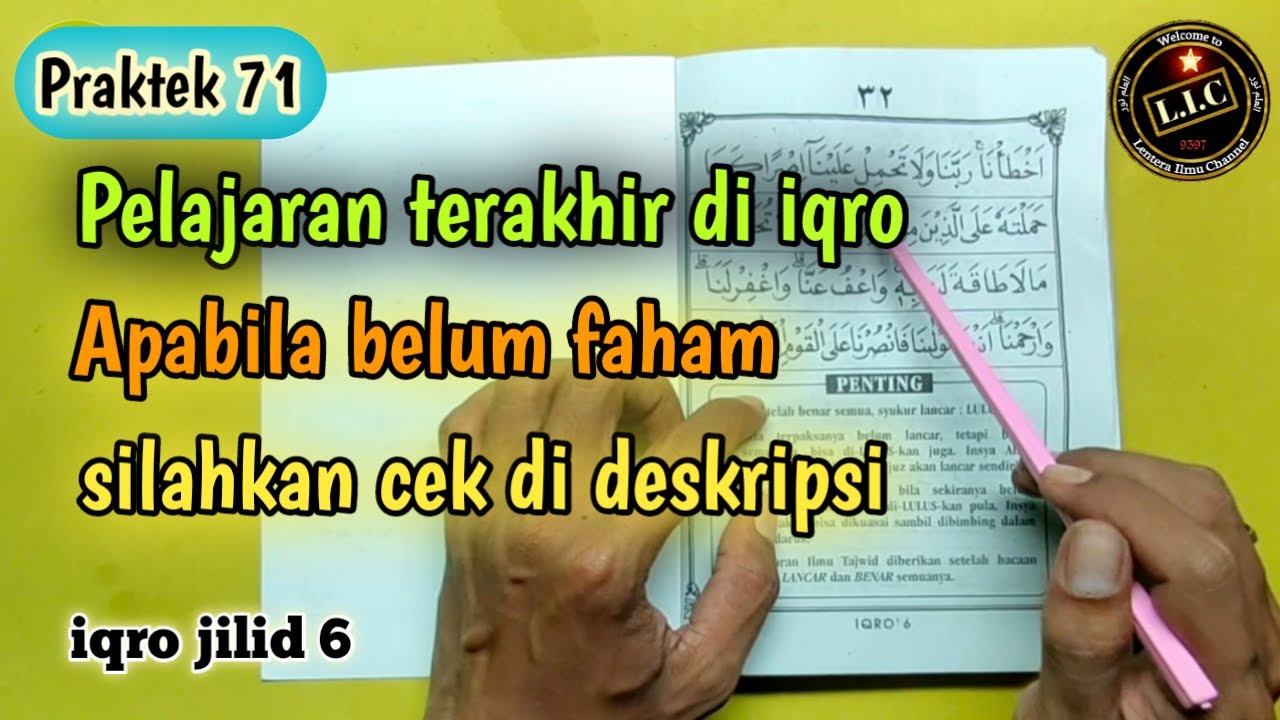 Praktek 71
Pelajaran terakhir di iqro
Apabila belum faham
silahkan cek di deskripsi
iqro jilid 6
Welcome to
العلم نور
العلم نور
L.I.C
9397
Lentera Ilmu Channel
٣٢
اَخْطَأْنَا ۚ رَبَّنَا وَلَا تَحْمِلْ عَلَيْنَآ اِصْرًا كَمَا
حَمَلْتَهٗ عَلَى الَّذِيْنَ
مَالَا طَاقَةَ وَاعْفُ عَنَّاۗ وَاغْفِرْلَنَاۗ
وَارْحَمْنَاۗ فَانْصُرْنَا عَلَى الْقَوْمِ
PENTING
telah benar semua, syukur lancar :
terpaksanya belum lancar, tetapi
bisa di-LULUS-kan juga. Insya
juz akan lancar
bila sekiranya
di-LULUS-kan pula. Insya
bisa dikuasai sambil dibimbing dalam
Ilmu Tajwid diberikan setelah bacaan
LANCAR dan BENAR semuanya.
IQRO' 6